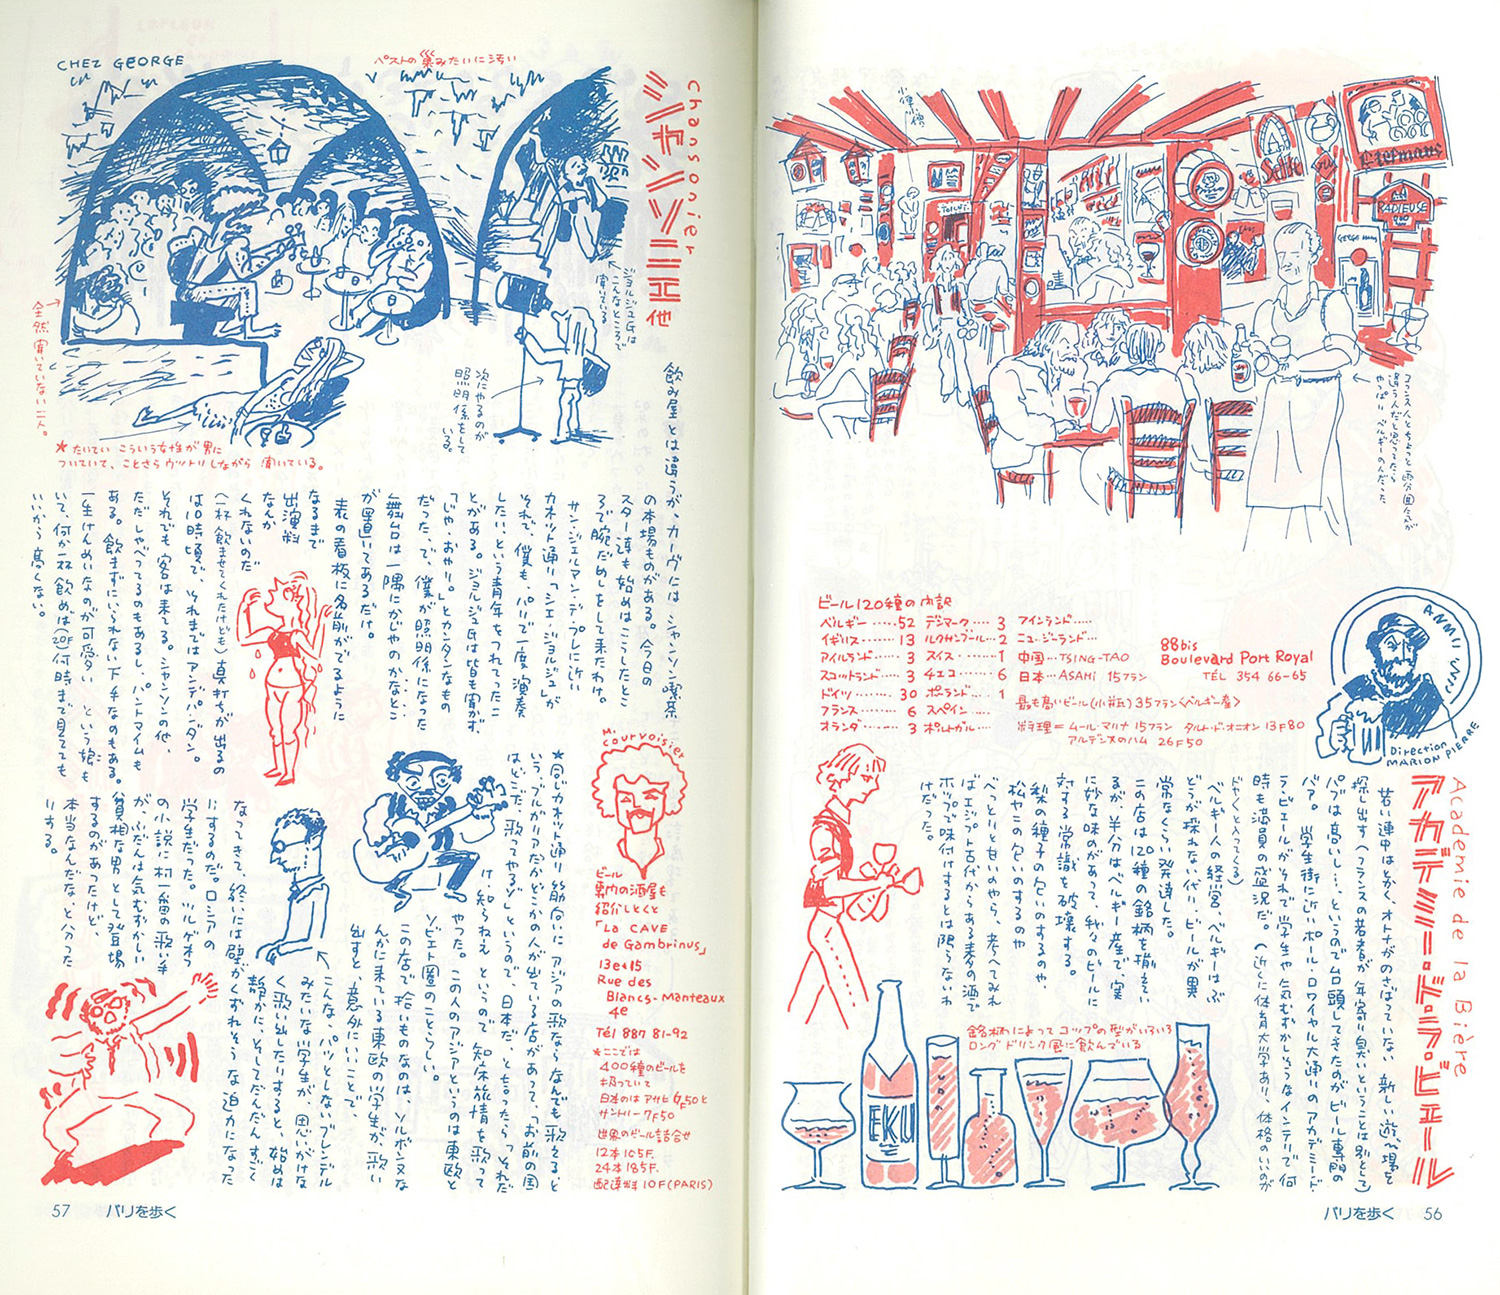 小便小僧
Toilet
Selle
Liefmans
RADIEUSE
コックス人とちょっと雰囲気が
違う人だと思ってたら
やっぱりベルギーの人だった
ビール120種の内訳
ベルギー……52 デンマーク……3 フィンランド……
イギリス……13 ルクサンブール…2 ニュージーランド…
アイルランド……3 スイス……1 中国…TSING-TAO
スコットランド……3 チエコ……6 日本…ASAHI 15フラン
ドイツ……30 ポーランド……1
フランス……6 スペイン……
オランダ……3 ポルトガル……
最も高いビール(小瓶)35フラン<ベルギー産>
料理=ムール・マリナ 15フラン タルト・ド・オニオン 13F80
アルデンヌのハム 26F50
88bis
Boulevard Port Royal
TÉL 354 66-65
Direction
MARION PIERRE
Academie de la Bière
アカデミー・ド・ラ・ビエール
若い連中はとかく、オトナがのさばっていない新しい遊び場を
探し出す(フランスの若者が年寄り臭いということは別として)
パブは高いし…、というので台頭してきたのがビール専門の
バァ。学生街に近いポール・ロワイヤル大通りのアカデミー・ド・
ラ・ビエールがそれで学生や気むずかしそうなインテリで何
時も満員の盛況だ。(近くに体育大学があり、体格のいいのが
どやどやと入ってくる)
ベルギー人の経営、ベルギーはぶ
どうが採れない代り、ビールが異
常なくらい発達した。
この店は120種の銘柄を揃えてい
るが、半分はベルギー産で、実
に妙な味のがあって、我々のビールに
対する常識を破壊する。
梨の種子の匂いのするのや、
松やにの匂いのするのや
べっとりと甘いのやら、考へてみれ
ばエジプト古代からある麦の酒で
ホップで味付けするとは限らないわ
けだった。
銘柄によってコップの型がいろいろ
ロングドリンク風に飲んでいる
EKU
パリを歩く 56
CHEZ GEORGE
ペストの巣みたいに汚い
chansonier
シャンソニエ他
ジョルジュGは
こんなところで
聞いている
次にやるのが
照明係をして
いる。
全然聞いていない二人。
★たいていこういう女性が男に
ついていて、ことさらウットリしながら聞いている。
飲み屋とは違うが、カーヴにはシャンソン喫茶
の本場ものがある。今日の
スター達も始めはこうしたとこ
ろで腕だめしをして来たわけ。
サン・ジェルマン・デ・プレに近い
カネット通り「シェ・ジョルジュ」が
それで、僕も、パリで一度演奏
したい、という青年をつれてったこ
とがある。ジョルジュGは皆も聞かず、
「じゃ、おやり。」とカンタンなもの
だった。で、僕が照明係になった
舞台は一隅にかじやのかなとこ
が置いてあるだけ。
表の看板に名前がでるように
なるまで
出演料
なんか
くれないのだ
(一杯飲ませてくれたけども)真打ちが出るの
は10時頃で、それまではアンデパンダン。
それでも客は来てる。シャンソンの他、
ただしゃべってるのもあるし、パントマイムも
ある。飲まずにいられない下手なのもある。
一生けんめいなのが可愛い という娘も
いて、何か一杯飲めば(20F)何時まで見てても
いいから高くない。
M. Courvoisier
ビール
専門の酒屋も
紹介しとくと
「La CAVE
de Gambrinus」
13et15
Rue des
Blancs-Manteaux
4e
Tél 887 81-92
★ここでは
400種のビールを
扱っていて
日本のはアサヒ6F50と
サントリー7F50
世界のビール詰合せ
12本105F.
24本185F.
配達料10F(PARIS)
★同じカネット通り筋向いにアジアの歌ならなんでも歌えると
いう、ブルガリアだかどこかの人が出ている店があって、「お前の国
はどこだ、歌ってやるぞ」というので、日本だ、と言ったら、「それだ
け知らねえ」というので知床旅情を歌って
やった。この人のアジアというのは東欧と
ソビエト圏のことらしい。
この店で拾いものなのは、ソルボンヌな
んかに来ている東欧の学生が、歌い
出すと、意外にいいことで、
こんな、パッとしないブレンデル
みたいな学生が、思いがけな
く歌い出したりすると、始めは
静かに、そしてだんだんすごく
なってきて、終いには壁がくずれそうな迫力になった
りするのだ。ロシアの
学生だった。ツルゲネフ
の小説に村一番の歌い手
が、ふだんは気むずかしい
貧相な男として登場
するのがあったけど、
本当なんだな、と分った
りする。
57 パリを歩く